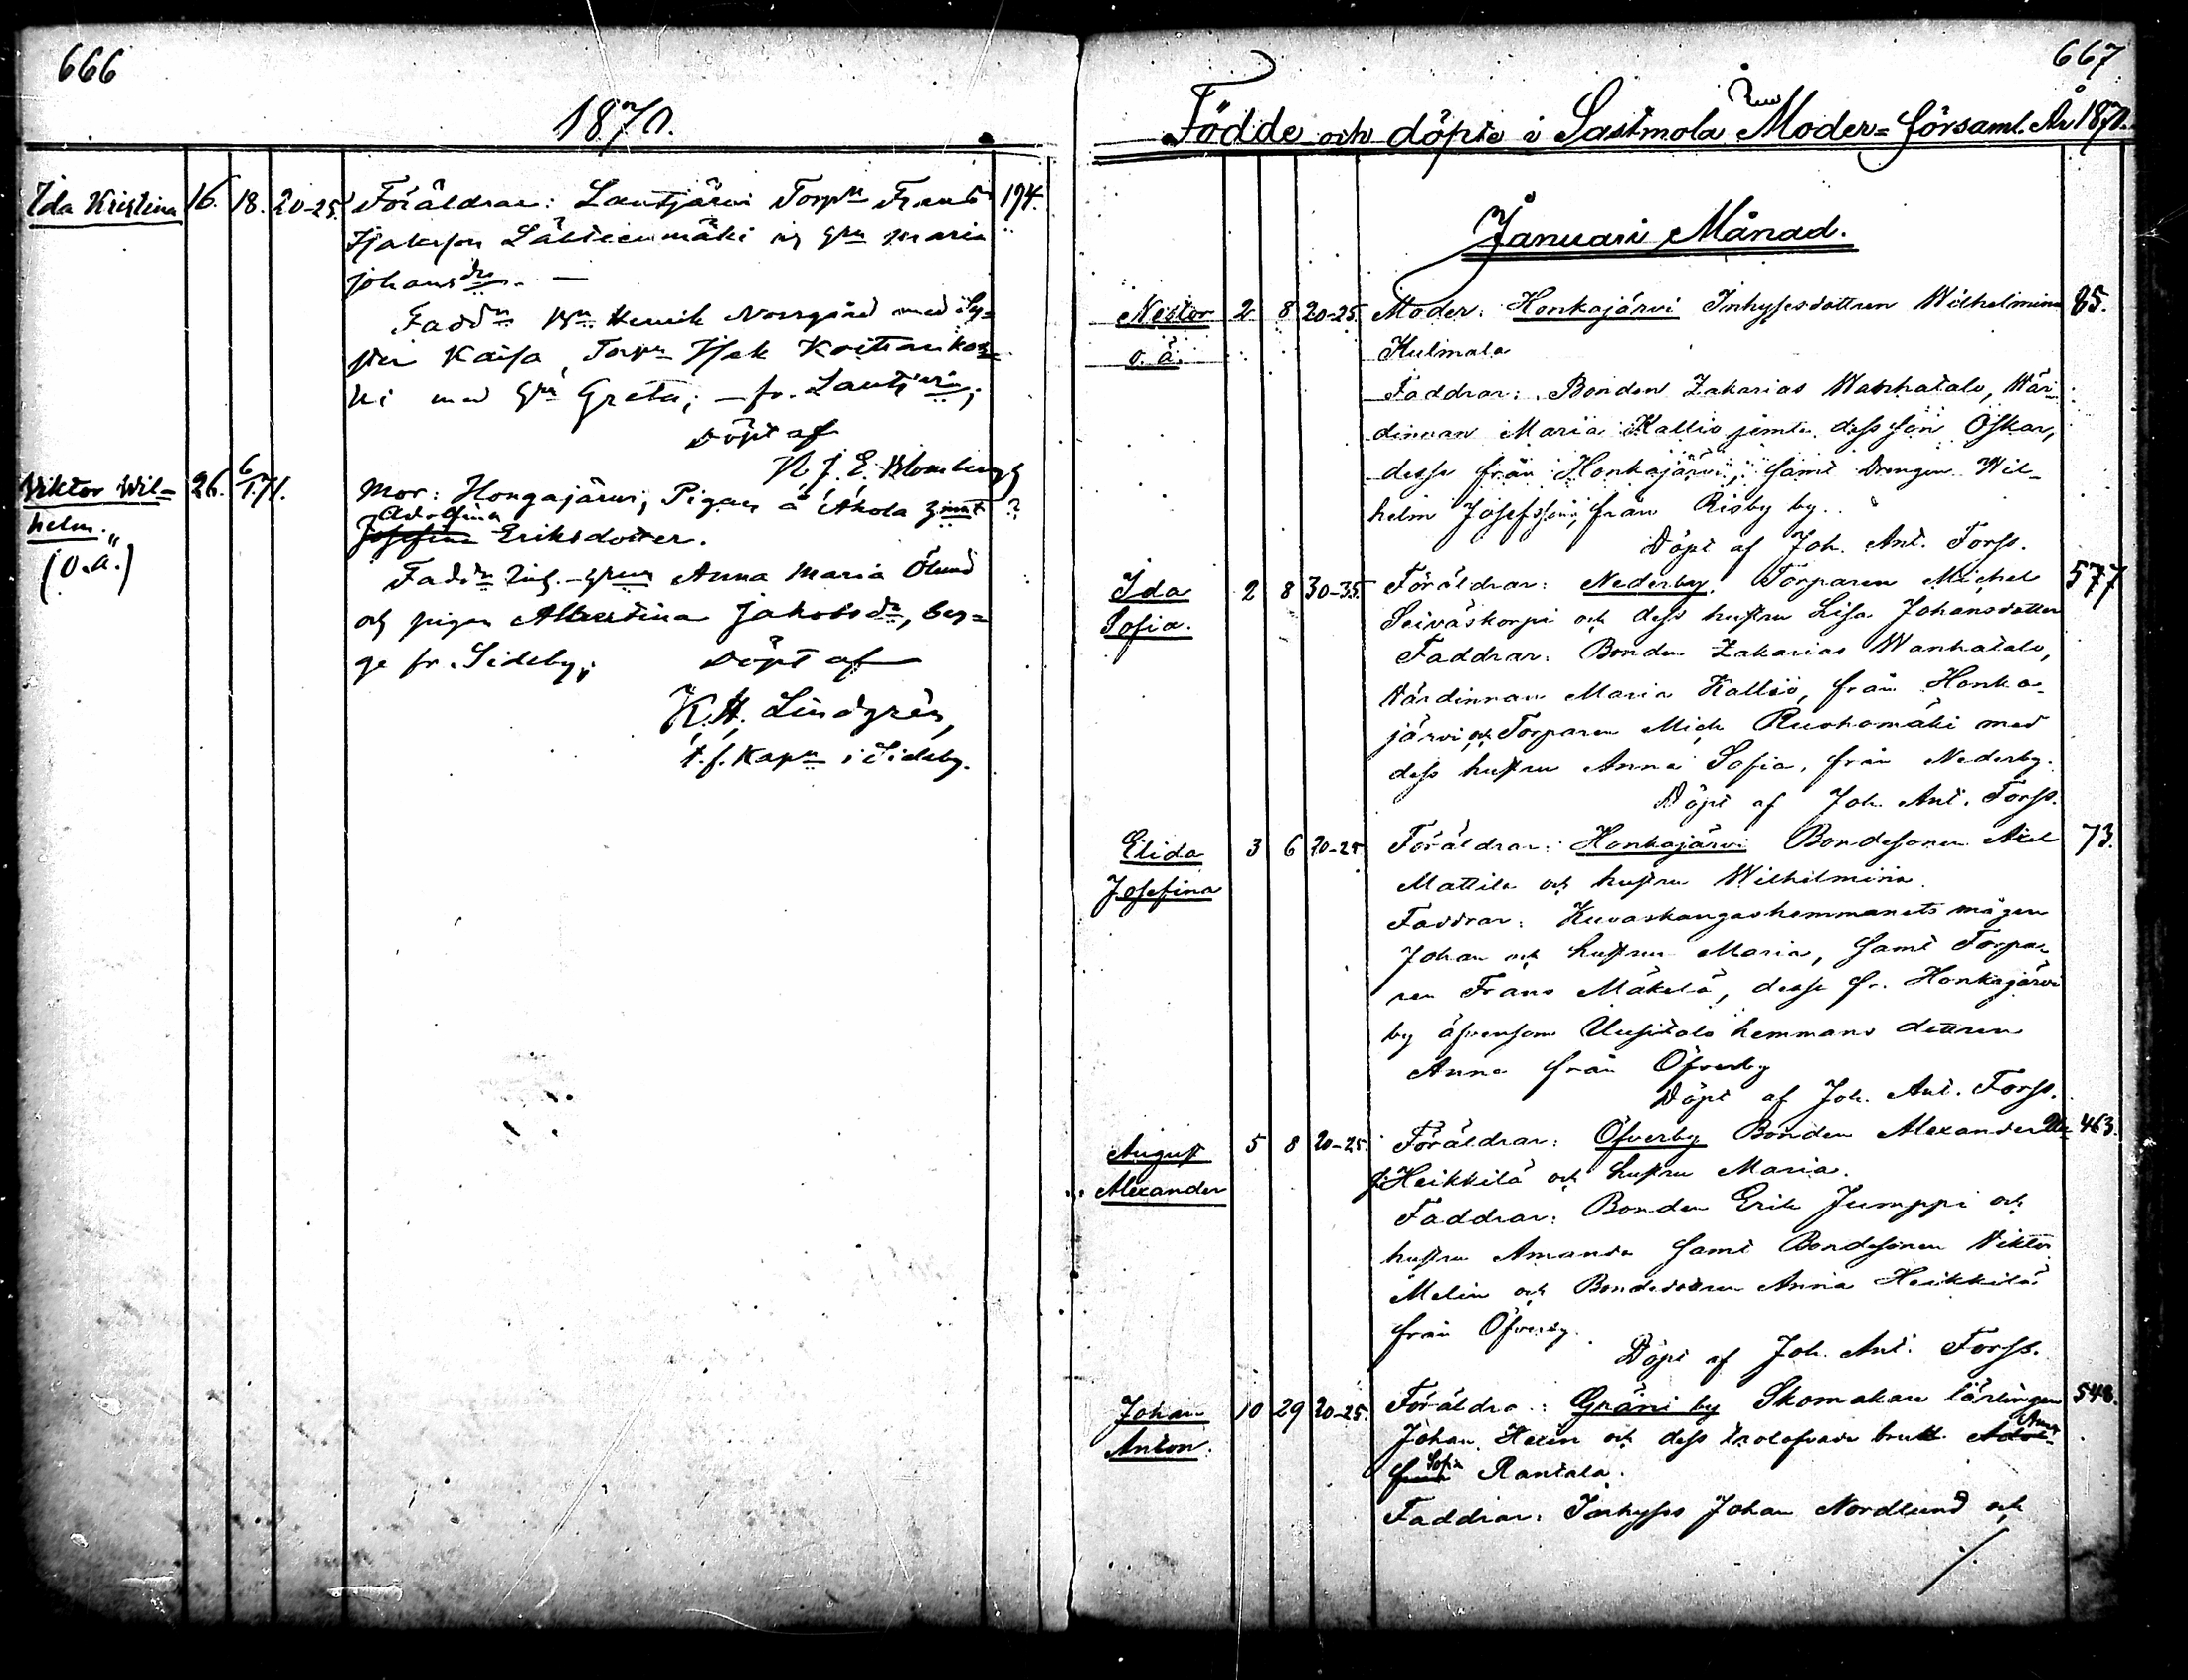 666
1870.
Ida Kristina 16. 18. 20-25. Föräldrar: Lautjärvi Torpn Frans 194.
Isaksson Lähteenmäki och hn Maria
Johansdr. —
Faddr Bn Henrik Norrgård med Sy=
ster Kaisa, Torpn Isak
ki med hn Greta; — fr. Lautjärvi;
Döpt af
N. J. E. Blomberg
Viktor Wil= 26. 6/1.71. Mor: Hongajärvi, Pigan å Ahola ?
helm. Adolfina
(O. ä.) Josefina Eriksdotter.
Faddr Anna Maria Ölund
och pigan Albertina Jakobsdr, beg=
ge fr. Sideby; Döpt af
K. H. Lindgrén,
t. f. Kapn i Sideby.
667
Födde och döpte i Sastmola Moder=församl. År 1871.
Januari Månad.
Nestor 2 8 20-25. Moder: Honkajärvi Inhysesdottren Wilhelmina 85.
o. ä. Kulmala
Faddrar: Bonden Zakarias Wanhatalo, Wär-
dinnan Maria Kallio jemte dess son Oskar,
desse från Honkajärvi, samt Drengen Wil-
helm Josefsson, från Risby by.
Döpt af Joh. Ant. Forss.
Ida 2 8 30-35. Föräldrar: Nederby Torparen Michel 577
Sofia. Seiväskorpi och dess hustru Lisa Johansdotter
Faddrar: Bonden Zakarias Wanhatalo,
Värdinnan Maria Kallio, från Honka-
järvi och Torparen Mich Ruohomäki med
dess hustru Anna Sofia, från Nederby.
Döpt af Joh. Ant. Forss.
Elida 3 6 20-25 Föräldrar: Honkajärvi Bondesonen Axel 73.
Josefina Mattila och hustru Wilhelmina.
Faddrar: Kuvaskangashemmanets mågen
Johan och hustru Maria, samt Torpa-
ren Frans Mäkelä, desse fr. Honkajärvi
by äfvensom Uusitalo hemmans dottren
Anna från Öfverby
Döpt af Joh. Ant. Forss.
August 5 8 20-25. Föräldrar: Öfverby Bonden Alexander 463.
Alexander Heikkilä och hustru Maria.
Faddrar: Bonden Erik Jumppi och
hustru Amanda samt Bondesonen Viktor
Melin och Bondedottren Anna Heikkilä
från Öfverby.
Döpt af Joh. Ant. Forss.
Johan 10 29 20-25. Föräldra: Gräni by Skomakare lärlingen 548.
Anton. Johan Hexin och dess trolofvade brud Anna
Sofia Rantala.
Faddrar: Inhyses Johan Nordlund och